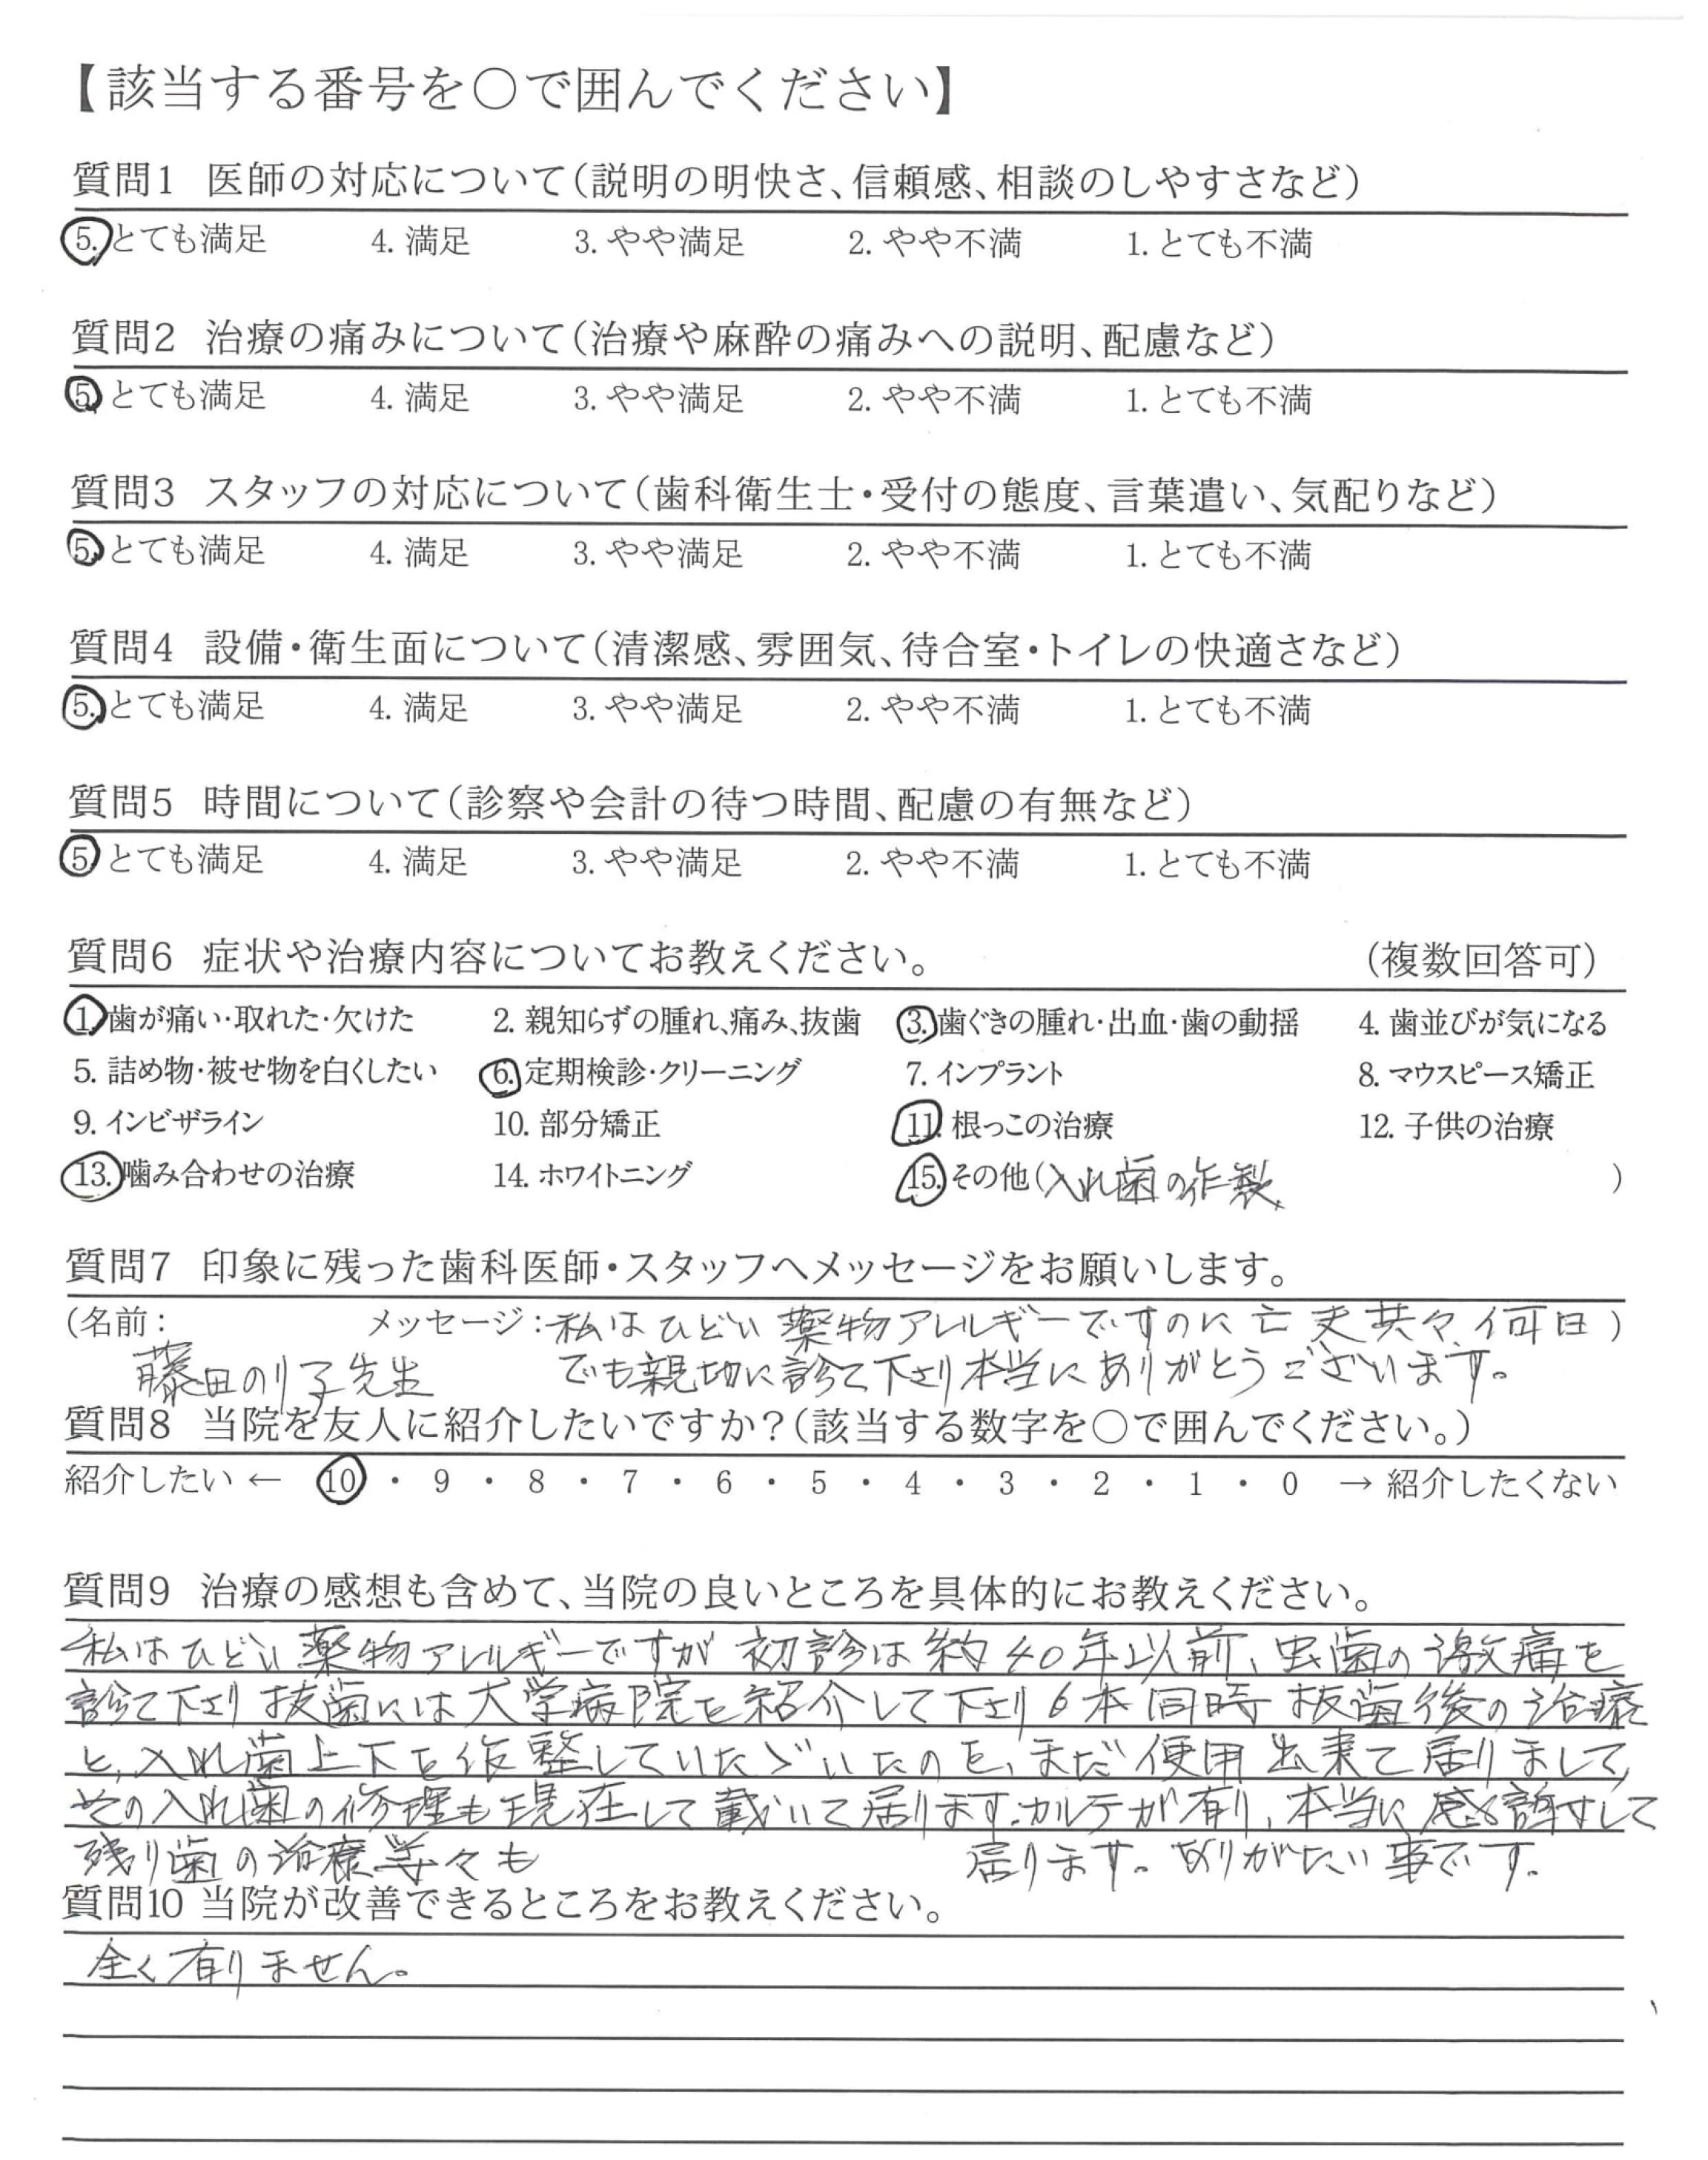 【該当する番号を○で囲んでください】
質問1 医師の対応について(説明の明快さ、信頼感、相談のしやすさなど)
5. とても満足 4. 満足 3. やや満足 2. やや不満 1. とても不満
質問2 治療の痛みについて(治療や麻酔の痛みへの説明、配慮など)
5. とても満足 4. 満足 3. やや満足 2. やや不満 1. とても不満
質問3 スタッフの対応について(歯科衛生士・受付の態度、言葉遣い、気配りなど)
5. とても満足 4. 満足 3. やや満足 2. やや不満 1. とても不満
質問4 設備・衛生面について(清潔感、雰囲気、待合室・トイレの快適さなど)
5. とても満足 4. 満足 3. やや満足 2. やや不満 1. とても不満
質問5 時間について(診察や会計の待つ時間、配慮の有無など)
5 とても満足 4. 満足 3. やや満足 2. やや不満 1. とても不満
質問6 症状や治療内容についてお教えください。 (複数回答可)
1. 歯が痛い・取れた・欠けた 2. 親知らずの腫れ、痛み、抜歯 3. 歯ぐきの腫れ・出血・歯の動揺 4. 歯並びが気になる
5. 詰め物・被せ物を白くしたい 6. 定期検診・クリーニング 7. インプラント 8. マウスピース矯正
9. インビザライン 10. 部分矯正 11. 根っこの治療 12. 子供の治療
13. 噛み合わせの治療 14. ホワイトニング 15. その他(入れ歯の作製 )
質問7 印象に残った歯科医師・スタッフへメッセージをお願いします。
(名前: メッセージ:私はひどい薬物アレルギーですのに亡夫共々、何日)
藤田のり子先生 でも親切に診て下さり本当にありがとうございます。
質問8 当院を友人に紹介したいですか?(該当する数字を○で囲んでください。)
紹介したい ← 10 ・ 9 ・ 8 ・ 7 ・ 6 ・ 5 ・ 4 ・ 3 ・ 2 ・ 1 ・ 0 → 紹介したくない
質問9 治療の感想も含めて、当院の良いところを具体的にお教えください。
私はひどい薬物アレルギーですが初診は約40年以前、虫歯の激痛を
診て下さり抜歯には大学病院を紹介して下さり6本同時抜歯後の治療
と、入れ歯上下を作整していたゞいたのを、まだ使用出来て居りまして、
その入れ歯の修理も現在して戴いて居ります。カルテが有り、本当に感謝して
残り歯の治療等々も 居ります。ありがたい事です。
質問10 当院が改善できるところをお教えください。
全く有りません。